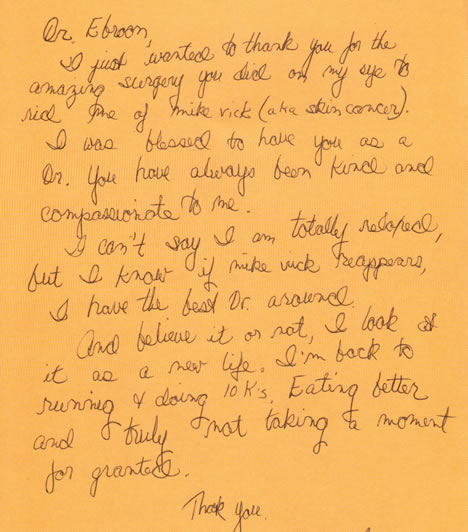 Dr. Ebroon,
I just wanted to thank you for the
amazing surgery you did on my eye to
rid me of mike vick (aka skin cancer).
I was blessed to have you as a
Dr. You have always been kind and
compassionate to me.
I can't say I am totally relaxed,
but I know if mike vick reappears,
I have the best Dr. around.
And believe it or not, I look at
it as a new life. I'm back to
running & doing 10K's. Eating better
and truly not taking a moment
for granted.
Thank you.